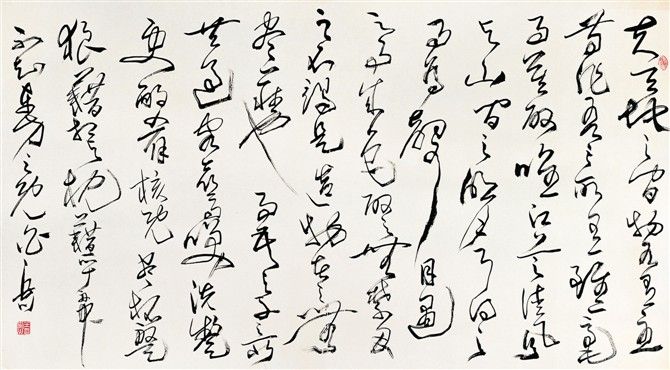 夫天地之間物各有主
苟非吾之所有雖一毫
而莫取唯江上之清風
與山間之明月耳得之
而為聲目遇
之而成色取之無禁用
之不竭是造物者之無
盡藏也而吾與子之所
共適客喜而笑洗盞
更酌肴核既盡杯盤
狼藉相與枕藉乎舟中
不知東方之既白